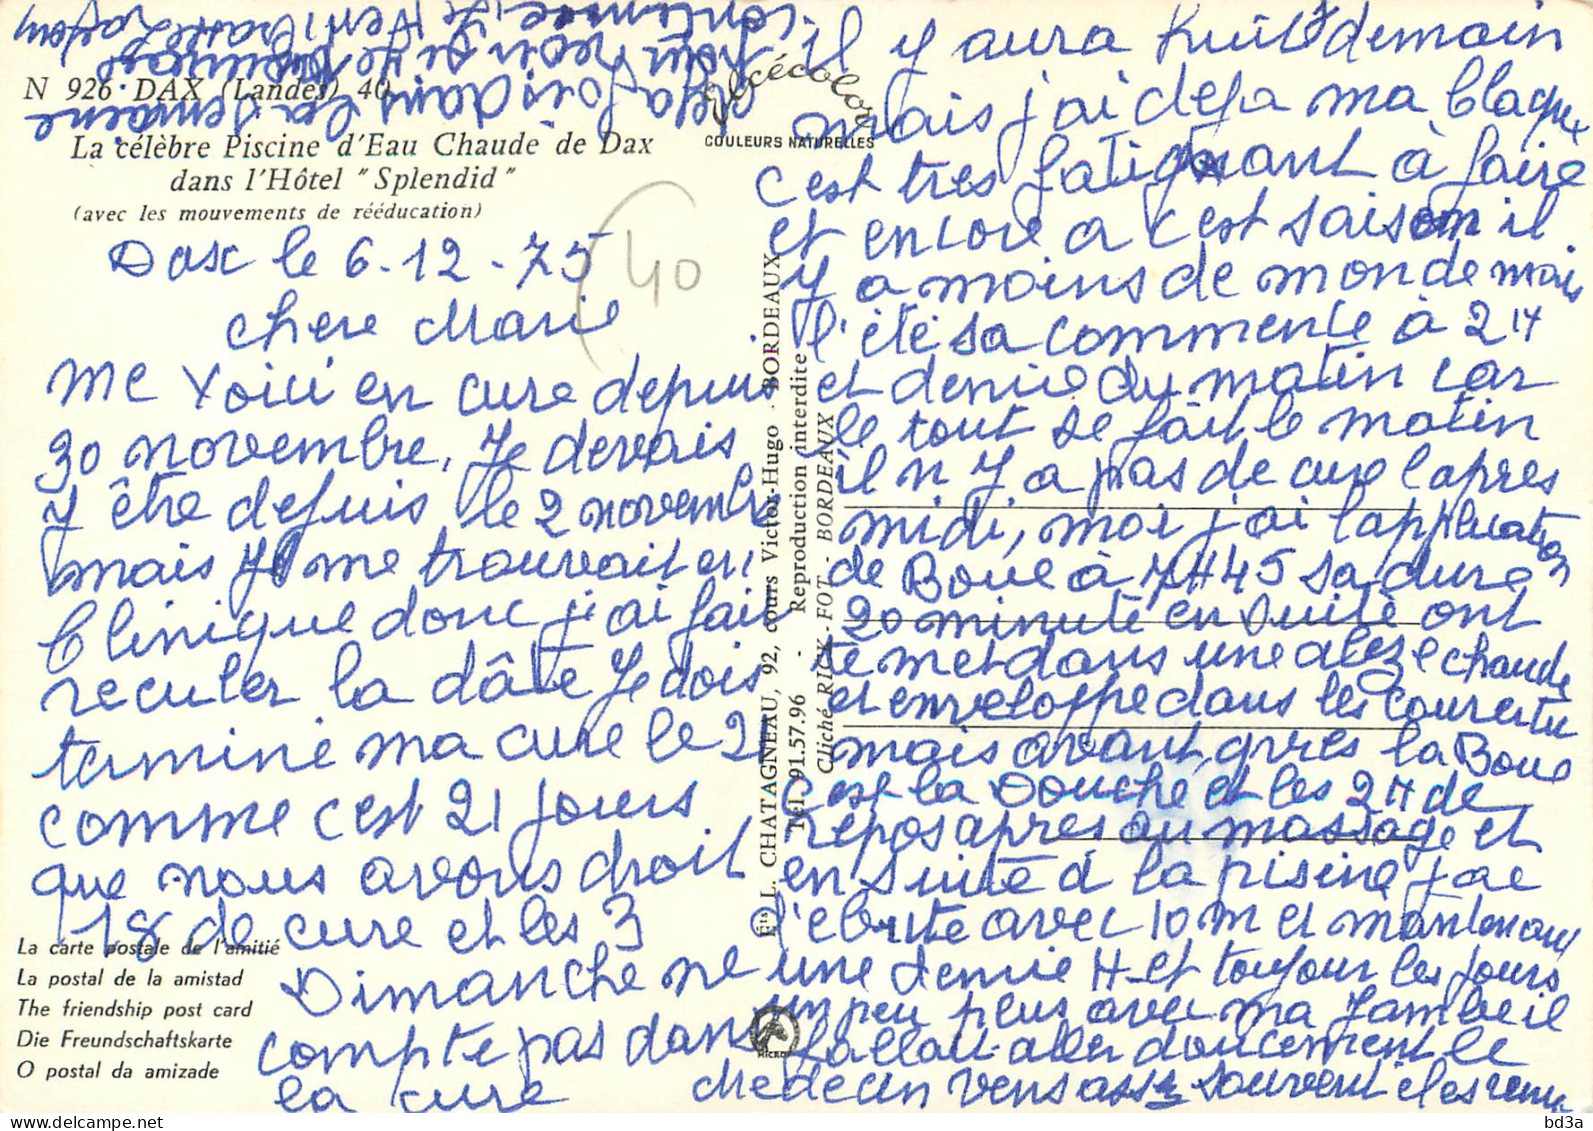 N 926 DAX (Landes) 40
La célèbre Piscine d'Eau Chaude de Dax
dans l'Hôtel "Splendid"
(avec les mouvements de rééducation)
Glycécolor
COULEURS NATURELLES
40
Dax le 6-12-75
Chere Marie
Me voici en cure depuis
30 novembre, Je devais
y être depuis le 2 novembre
mais je me trouvait en
Clinique donc j'ai fait
reculer la dâte Je dois
terminé ma cure le 21
comme c'est 21 jours
que nous avons droit
18 de cure et les 3
Dimanche ne
compte pas dans
la cure
il y aura huit demain
mais j'ai deja ma claque
c'est tres fatiguant à faire
et encore a c'est saison il
y a moins de monde mais
l'été sa commence à 2H
et demie du matin car
le tout se fait le matin
il n'y a pas de cure l'apres
midi, moi j'ai l'application
de Boue à 7H45 sa dure
20 minute en suite ont
te met dans une aleze chaude
et enveloppe dans les couvertu
mais avant, apres la Boue
c'est la Douche et les 2H de
repos apres au massage et
en suite à la pisine j'ae
débuté avec 10 m et maintenant
une demie H et toujour les jours
un peu plus avec ma jambe il
fallait aller doucement le
Medecin vens assez souvent
Éts L. CHATAGNEAU, 92, cours Victor-Hugo - BORDEAUX
Tél. 91.57.96 - Reproduction interdite
Cliché RICK - FOT - BORDEAUX
RICK
La carte postale de l'amitié
La postal de la amistad
The friendship post card
Die Freundschaftskarte
O postal da amizade
bd3a